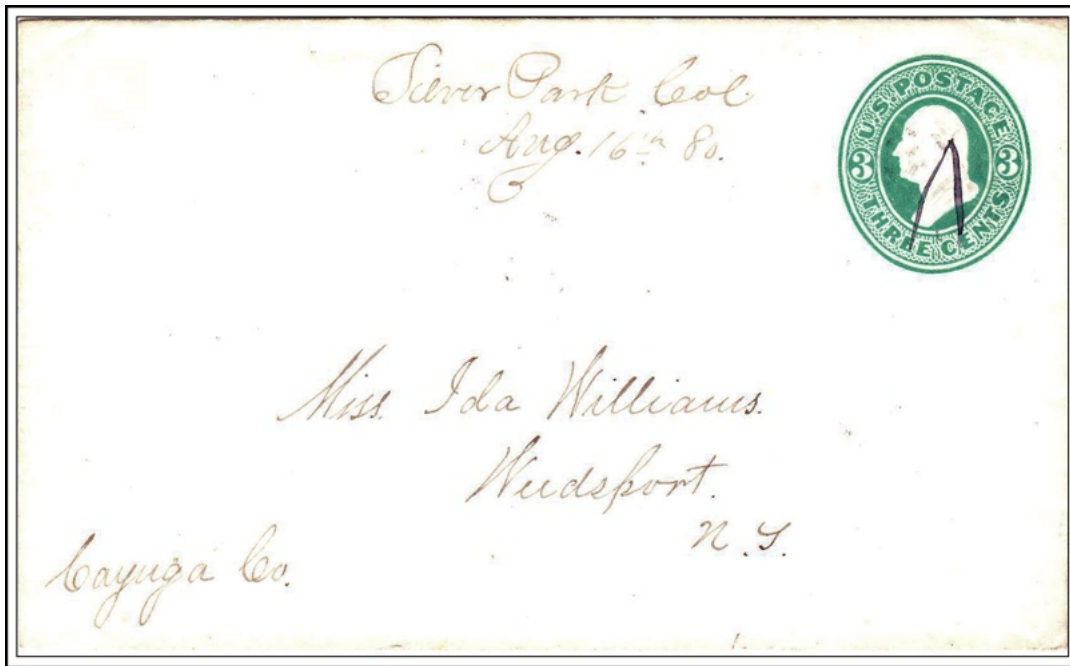 Silver Park Col.
Aug. 16th 80.
U.S. POSTAGE
3 3
THREE CENTS
Miss. Ida Williams.
Weedsport.
N.Y.
Cayuga Co.